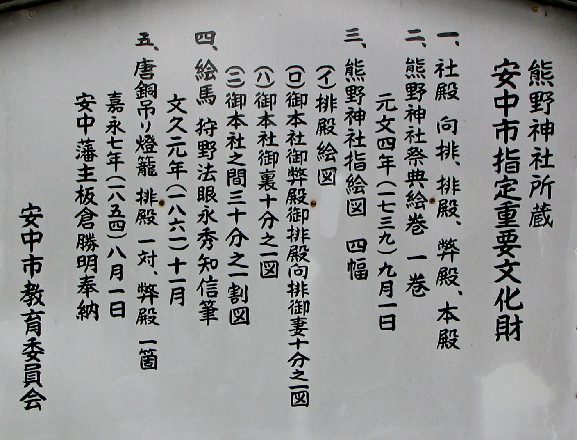 熊野神社所蔵
安中市指定重要文化財
一、社殿 向排、排殿、弊殿、本殿
二、熊野神社祭典絵巻 一巻
元文四年(一七三九)九月一日
三、熊野神社指絵図 四幅
(イ)排殿絵図
(ロ)御本社御弊殿御排殿向排御妻十分之一図
(ハ)御本社御裏十分之一図
(ニ)御本社之間三十分之一割図
四、絵馬 狩野法眼永秀知信筆
文久元年(一八六一)十一月
五、唐銅吊り燈籠 排殿 一対、弊殿 一箇
嘉永七年(一八五四)八月一日
安中藩主板倉勝明奉納
安中市教育委員会